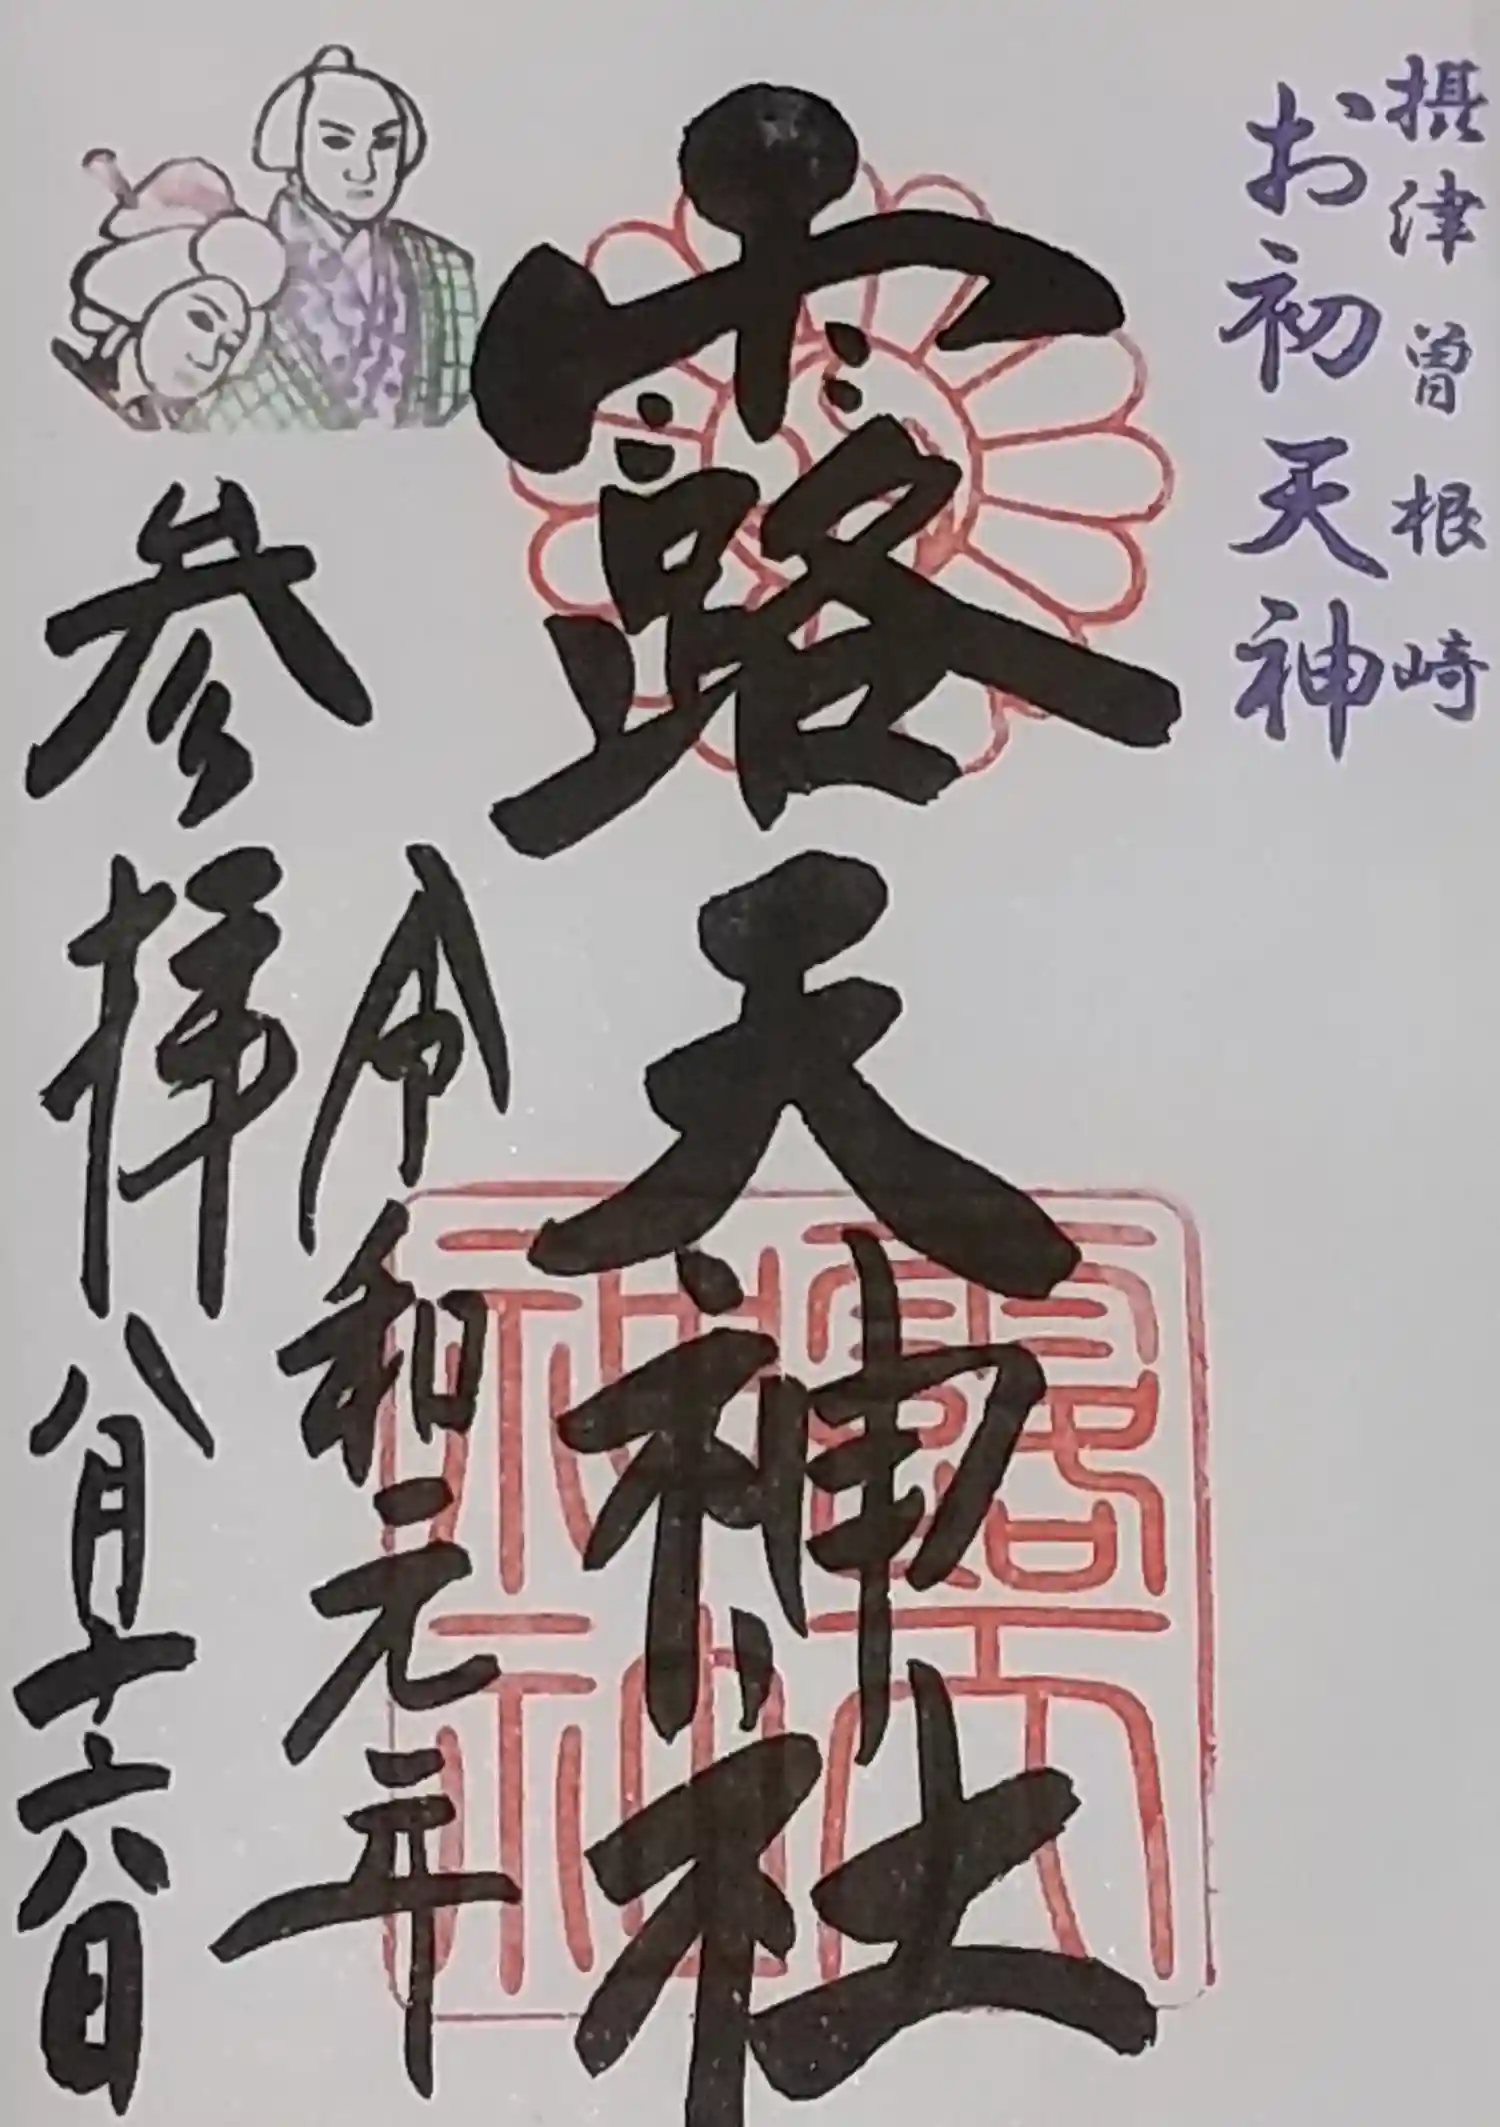 摂津曽根崎
お初天神
露天神社
令和元年
参拝八月十六日
露天神社